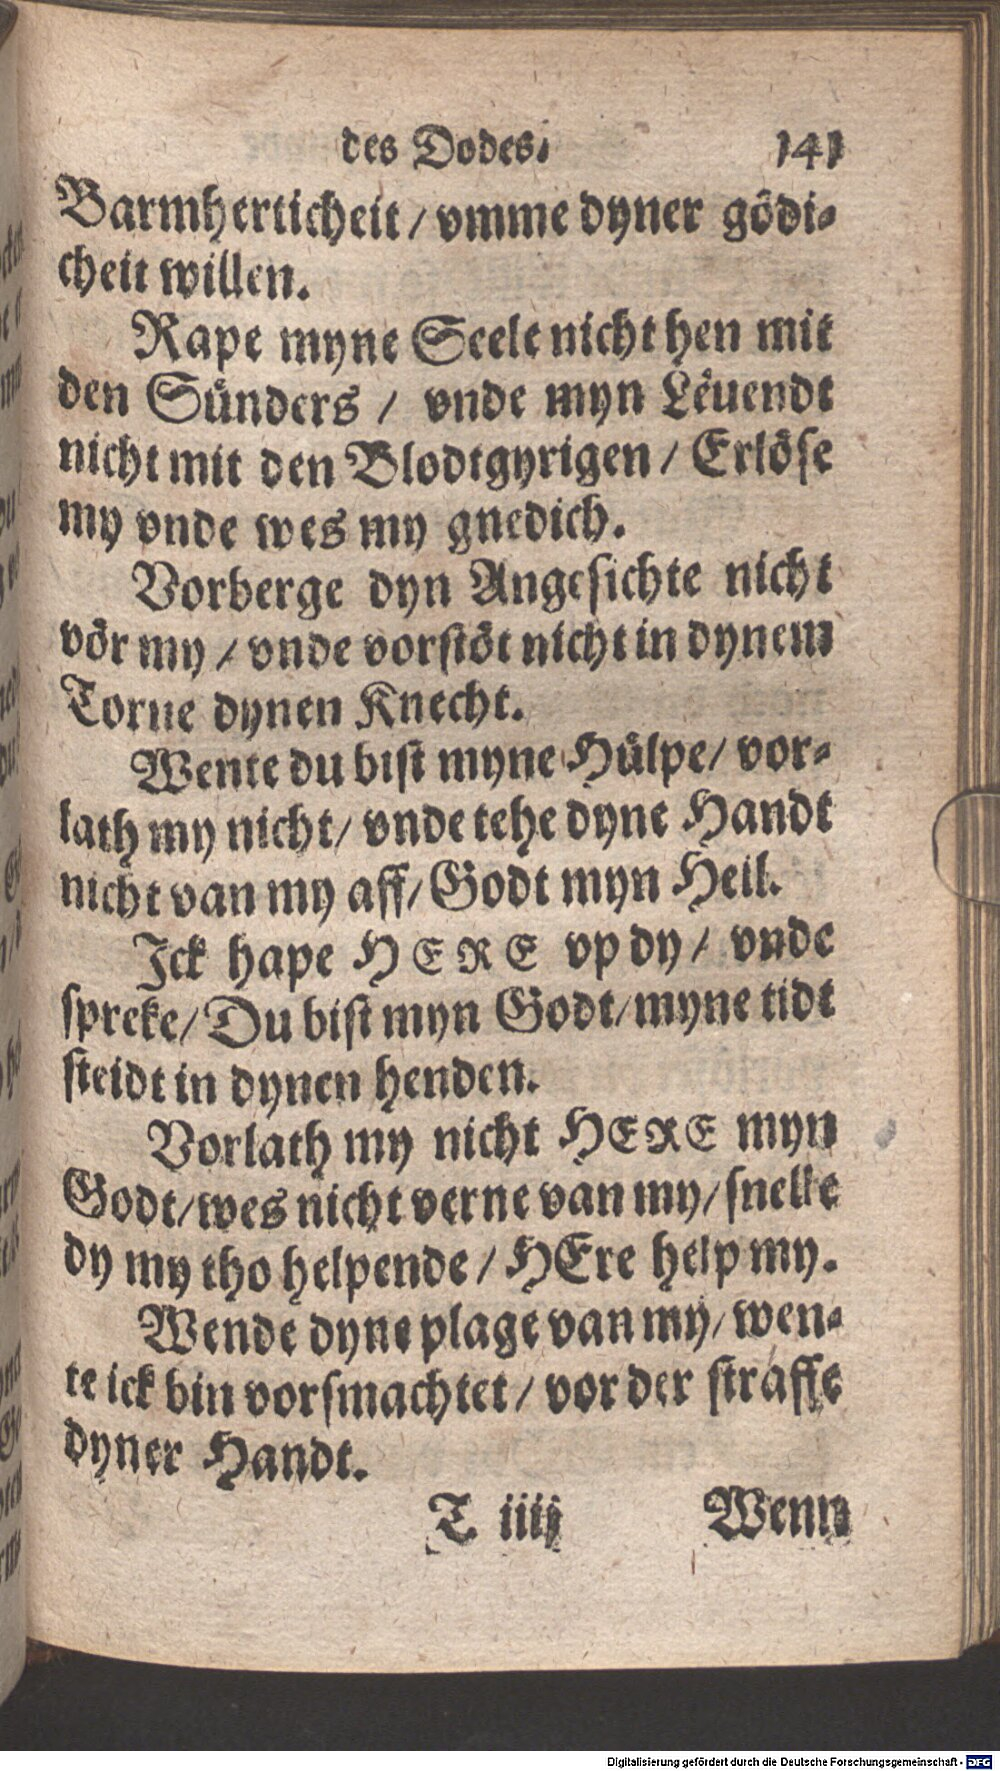 des Dodes. 141
Barmherticheit / vmme dyner gödi-
cheit willen.
Rape myne Seele nicht hen mit
den Sünders / vnde myn Lëuendt
nicht mit den Blodtgyrigen / Erlöse
my vnde wes my gnedich.
Vorberge dyn Angesichte nicht
vör my / vnde vorstöt nicht in dynem
Torne dynen Knecht.
Wente du bist myne Hülpe / vor-
lath my nicht / vnde tehe dyne Handt
nicht van my aff / Godt myn Heil.
Ick hape HERE vp dy / vnde
spreke / Du bist myn Godt / myne tidt
steidt in dynen henden.
Vorlath my nicht HERE myn
Godt / wes nicht verne van my / snelle
dy my tho helpende / HEre help my.
Wende dyne plage van my / wen-
te ick bin vorsmachtet / vor der straffe
dyner Handt.
T iiij Wenn
Digitalisierung gefördert durch die Deutsche Forschungsgemeinschaft - DFG